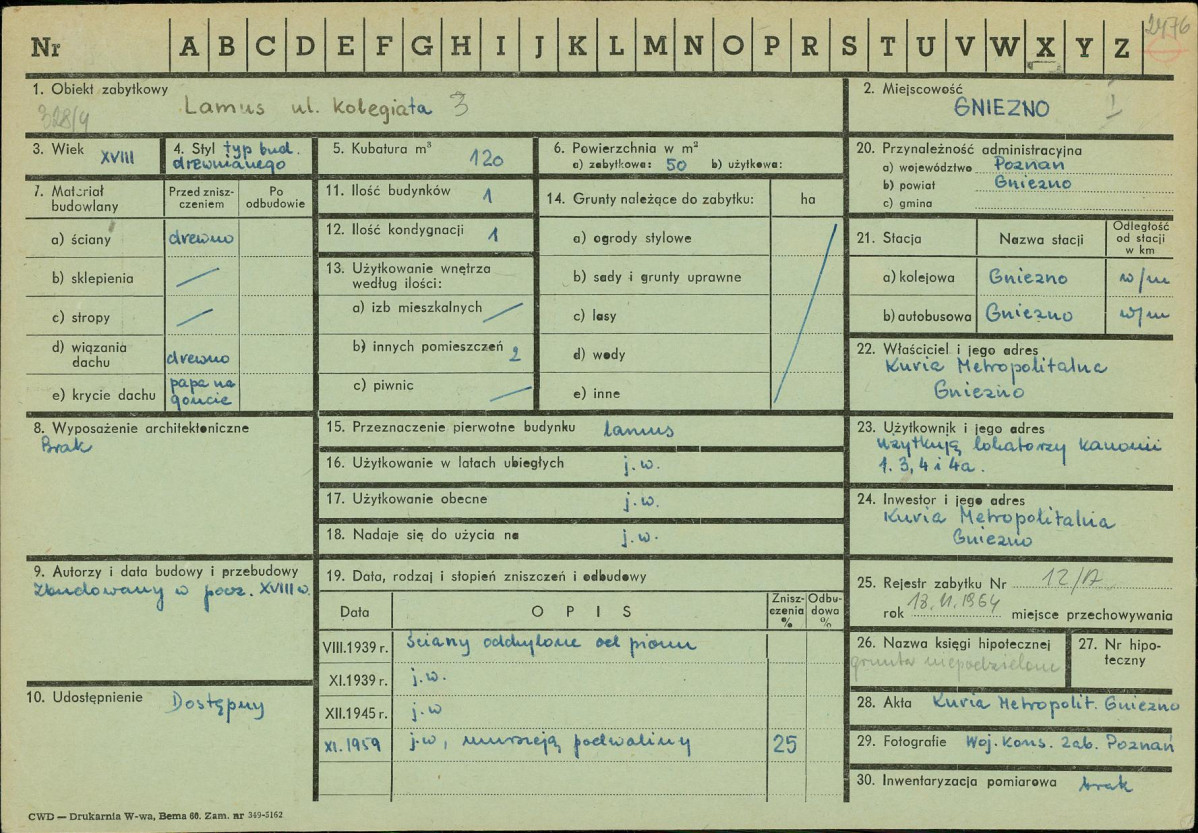 Nr A B C D E F G H I J K L M N O P R S T U V W X Y Z
2176
1. Obiekt zabytkowy
328/4
Lamus ul. Kolegiata 3
2. Miejscowość
GNIEZNO I
3. Wiek XVIII
4. Styl typ bud.
drewnianego
5. Kubatura m³ 120
6. Powierzchnia w m²
a) zabytkowa: 50 b) użytkowa:
7. Materiał
budowlany
Przed znisz-
czeniem
Po
odbudowie
a) ściany drewno
b) sklepienia /
c) stropy /
d) wiązania
dachu drewno
e) krycie dachu papa na
goncie
8. Wyposażenie architektoniczne
Brak
9. Autorzy i data budowy i przebudowy
Zbudowany w pocz. XVIII w.
10. Udostępnienie Dostępny
11. Ilość budynków 1
12. Ilość kondygnacji 1
13. Użytkowanie wnętrza
według ilości:
a) izb mieszkalnych /
b) innych pomieszczeń 2
c) piwnic /
14. Grunty należące do zabytku: ha
a) ogrody stylowe
b) sady i grunty uprawne
c) lasy
d) wody
e) inne
15. Przeznaczenie pierwotne budynku lamus
16. Użytkowanie w latach ubiegłych j.w.
17. Użytkowanie obecne j.w.
18. Nadaje się do użycia na j.w.
19. Data, rodzaj i stopień zniszczeń i odbudowy
Data O P I S
Znisz-
czenia
%
Odbu-
dowa
%
VIII.1939 r. ściany odchylone od pionu
XI.1939 r. j.w.
XII.1945 r. j.w
XI.1959 j.w, murszeją podwaliny 25
20. Przynależność administracyjna
a) województwo Poznań
b) powiat Gniezno
c) gmina
21. Stacja Nazwa stacji
Odległość
od stacji
w km
a) kolejowa Gniezno w/m
b) autobusowa Gniezno w/m
22. Właściciel i jego adres
Kuria Metropolitalna
Gniezno
23. Użytkownik i jego adres
użytkują lokatorzy kanonii
1. 3, 4 i 4a.
24. Inwestor i jego adres
Kuria Metropolitalna
Gniezno
25. Rejestr zabytku Nr 12/A
rok 13.II.1964 miejsce przechowywania
26. Nazwa księgi hipotecznej
grunta niepodzielone
27. Nr hipo-
teczny
28. Akta Kuria Metropolit. Gniezno
29. Fotografie Woj. Kons. Zab. Poznań
30. Inwentaryzacja pomiarowa brak
CWD — Drukarnia W-wa, Bema 60. Zam. nr 349-5162